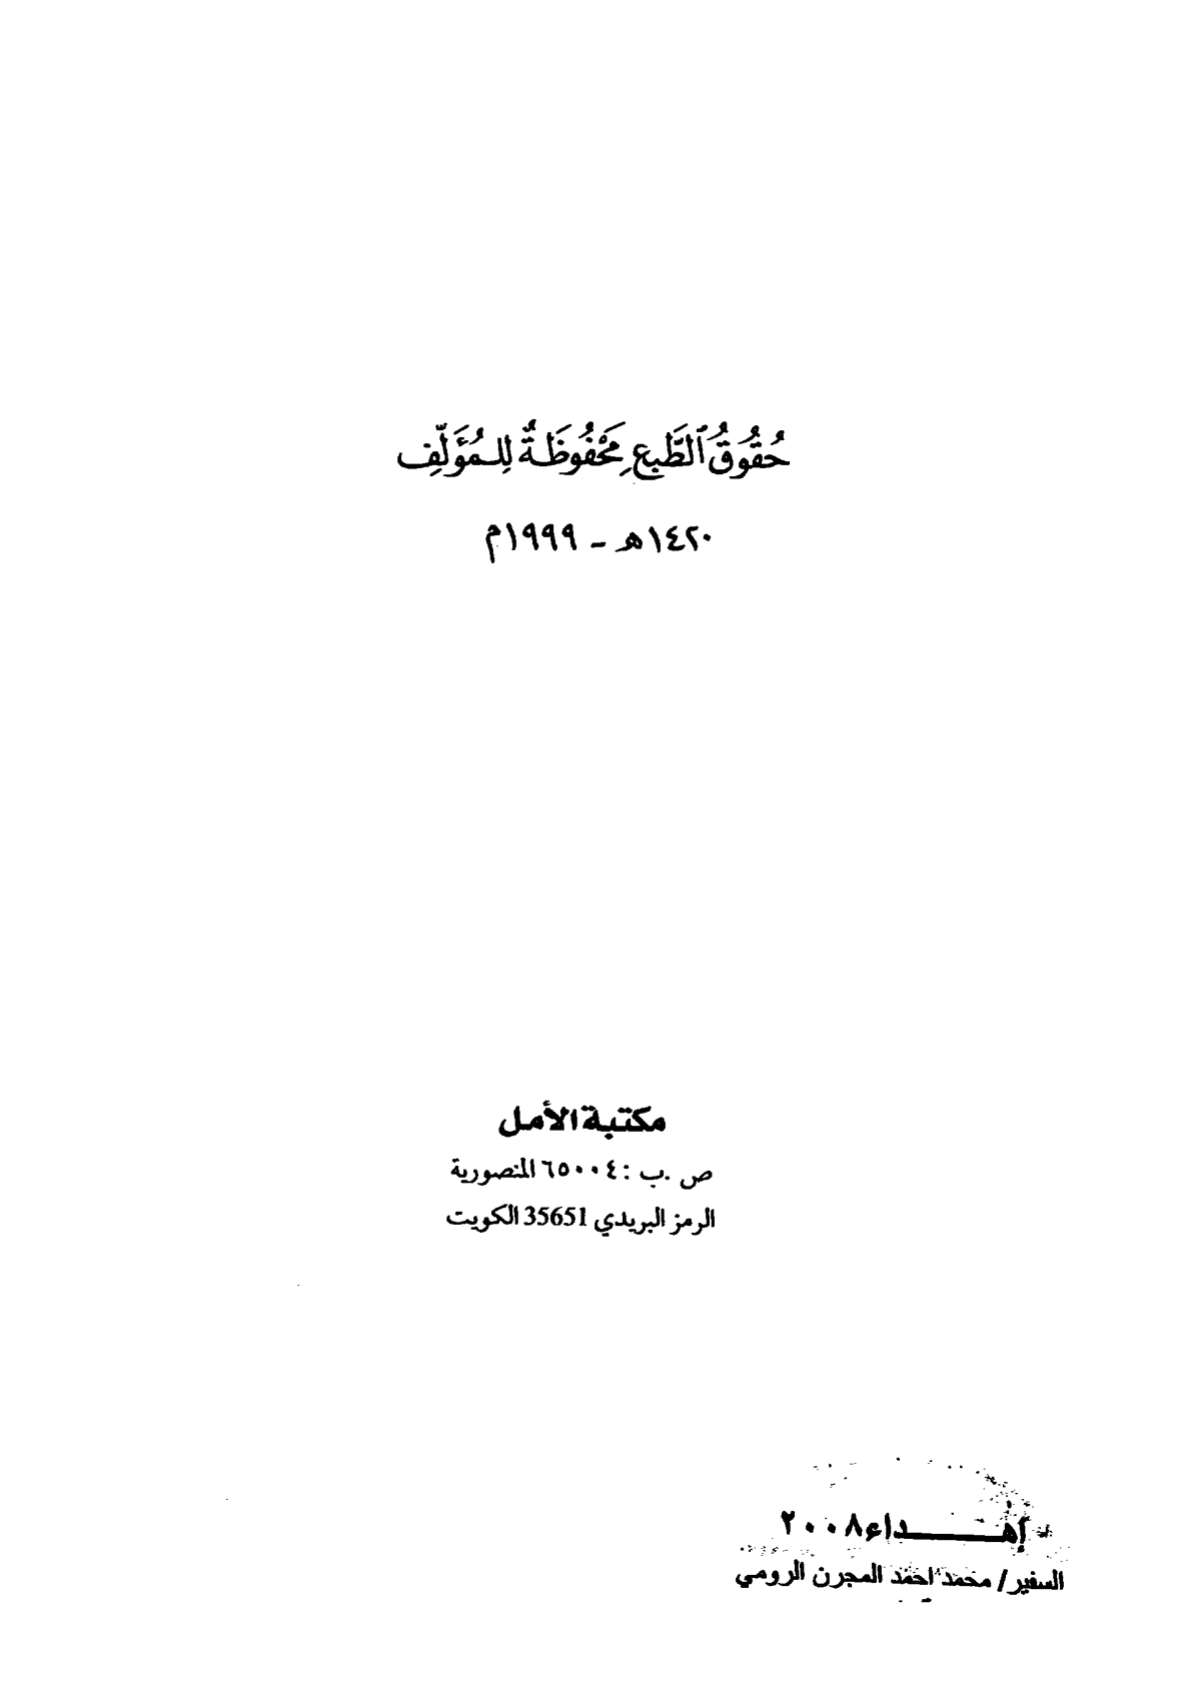 حُقُوقُ ٱلطَّبعِ مَحْفُوظَةٌ لِلمُؤَلِّفِ
١٤٢٠هـ - ١٩٩٩م
مكتبة الأمل
ص .ب : ٦٥٠٠٤ المنصورية
الرمز البريدي 35651 الكويت
إهـــــــداء٢٠٠٨
السفير/ محمد احمد المجرن الرومي